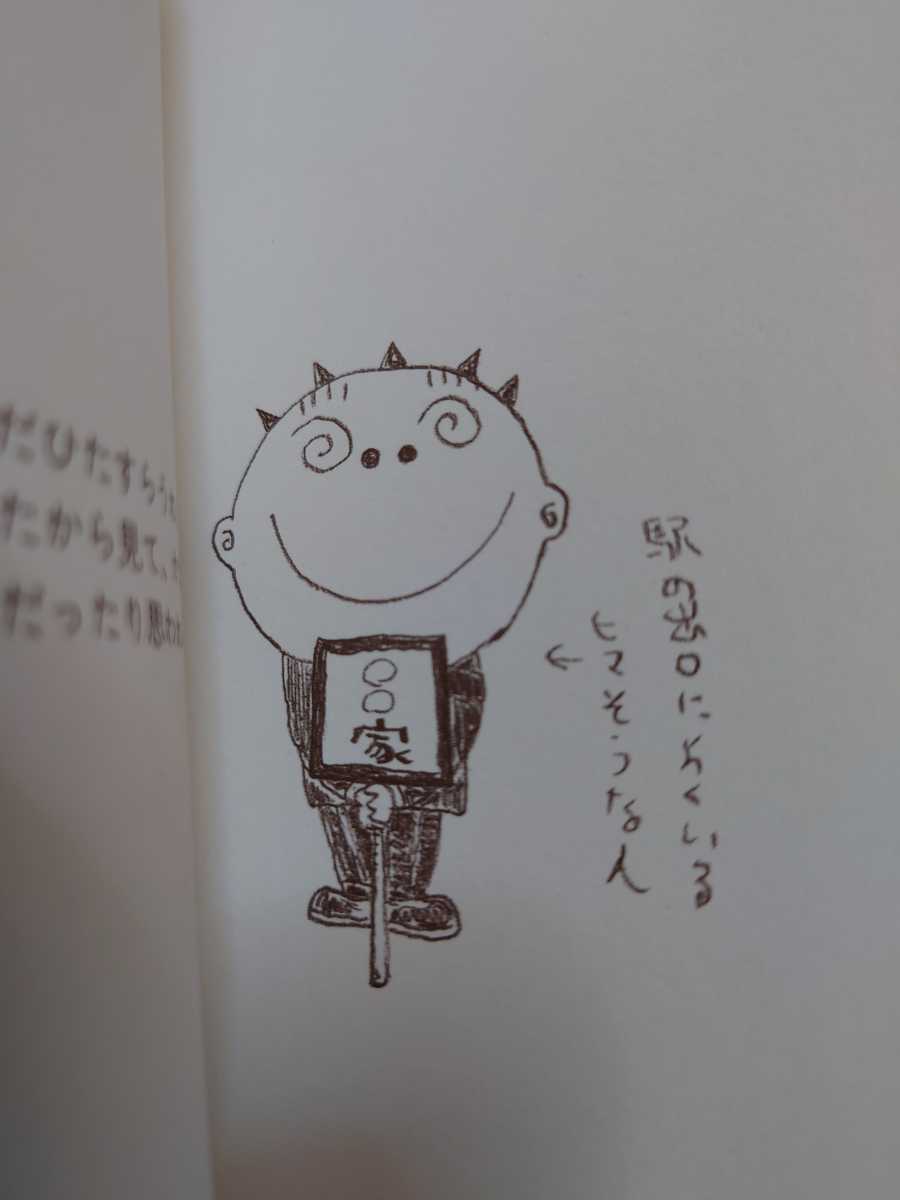 だひたすらう
だから見て、
だったり思わ
駅の出口によくいる
ヒマそうな人
←
○○家